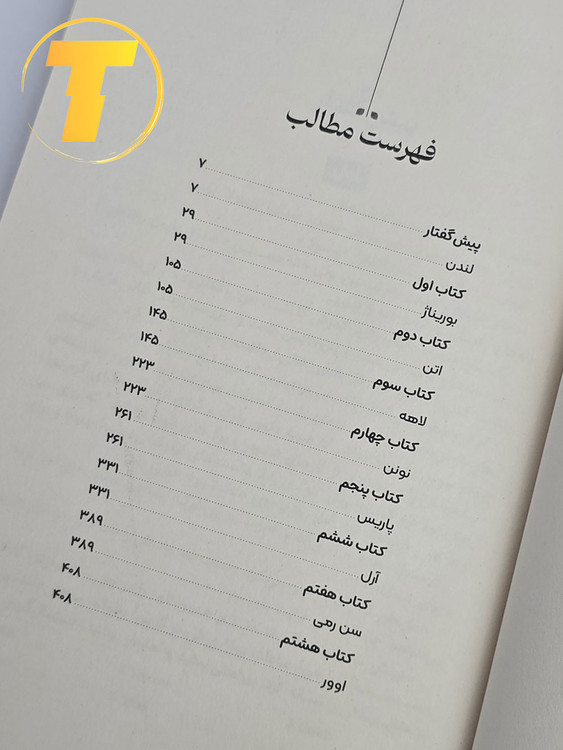 T
فهرست مطالب
پیش‌گفتار ۷
لندن ۷
کتاب اول ۲۹
بوریناژ ۲۹
کتاب دوم ۱۰۵
اتن ۱۰۵
کتاب سوم ۱۴۵
لاهه ۱۴۵
کتاب چهارم ۲۲۳
نونن ۲۲۳
کتاب پنجم ۲۶۱
پاریس ۲۶۱
کتاب ششم ۳۳۱
آرل ۳۳۱
کتاب هفتم ۳۸۹
سن رمی ۳۸۹
کتاب هشتم ۴۰۸
اوور ۴۰۸